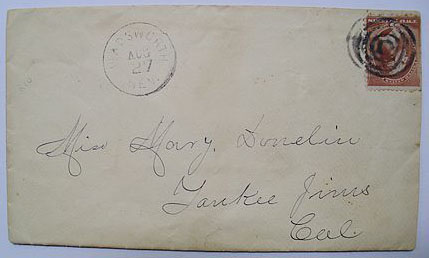 WADSWORTH
AUG
27
NEV.
Miss Mary Donelin
Yankee Jims
Cal.